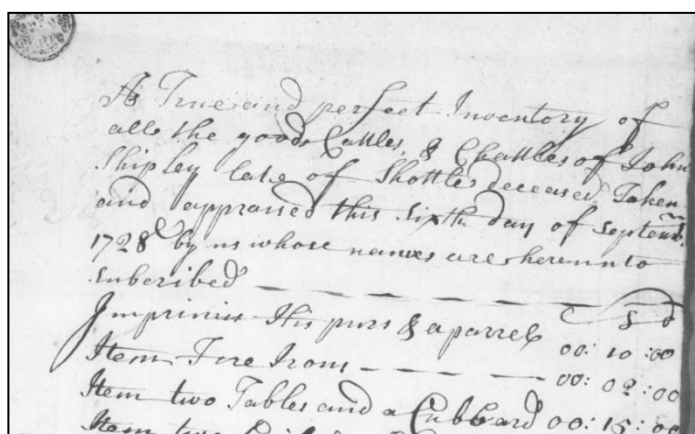 A True and perfect Inventory of
all the goods Cattles, & Chattles of John
Shipley late of Shottle deceased Taken
and appraised this sixth day of septem.
1728 by us whose names are hereunto
subcribed
L S d
Imprimis His purs & aparrel 00: 10: 00
Item Fire Irons 00: 02: 00
Item two Tables and a Cubbard 00: 15: 00
Item two